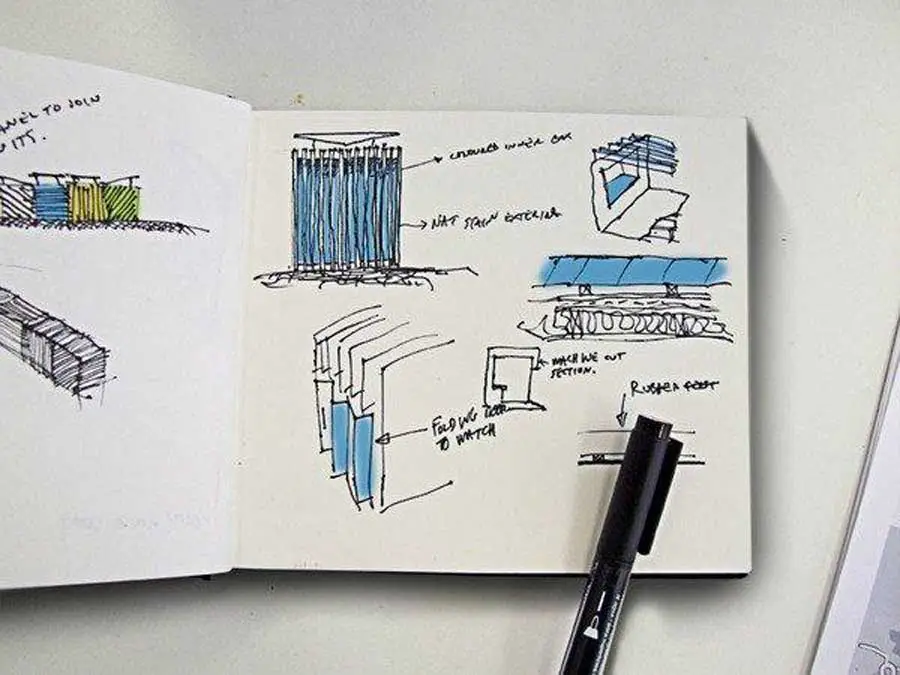 TO JOIN
ITS.
COLOURED INNER BOX
NAT STAIN EXTERIOR
MACHINE CUT
SECTION.
RUBBER FEET
FOLDING
TO WATCH